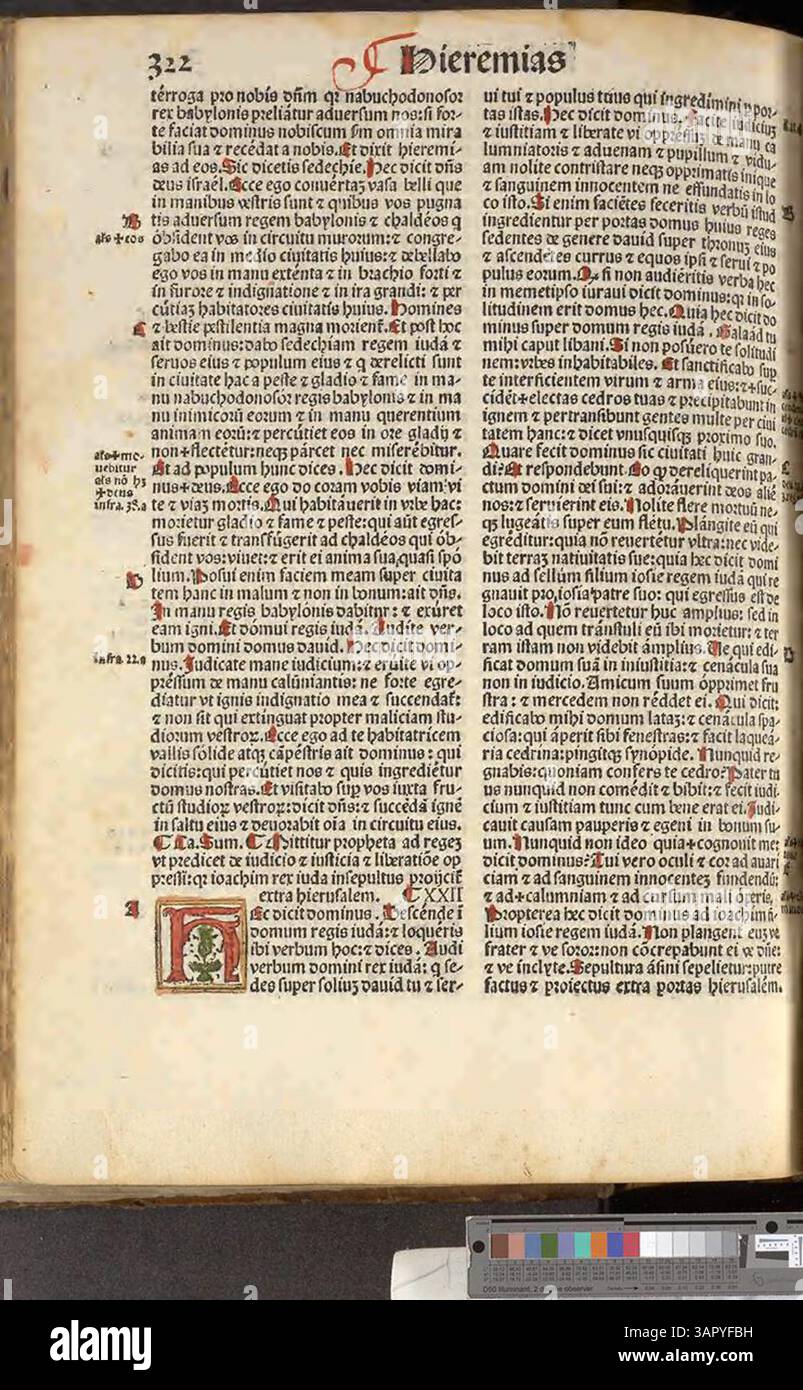 322
Hieremias
térroga pro nobis dñm qꝛ nabuchodonosor
rex babylonis preliátur aduersum nos: si for-
te faciat dominus nobiscum ẜm omnia mira
bilia sua ⁊ recédat a nobis. Et dixit hieremi-
as ad eos. Sic dicetis sedechie. Hec dicit dñs
deus israél. Ecce ego conuértaꝫ vasa belli que
in manibus vestris sunt ⁊ quibus vos pugna
B
tis aduersum regem babylonis ⁊ chaldéos q
als + eos
óbsident vos in circuitu murorum: ⁊ congre-
gabo ea in medio ciuitatis huius: ⁊ debellabo
ego vos in manu exténta ⁊ in brachio forti ⁊
in furore ⁊ indignatione ⁊ in ira grandi: ⁊ per
cútiaꝫ habitatores ciuitatis huius. Homines
C
⁊ bestie pestilentia magna morient̃. Et post hoc
ait dominus: dabo sedechiam regem iudá ⁊
seruos eius ⁊ populum eius ⁊ q derelicti sunt
in ciuitate hac a peste ⁊ gladio ⁊ fame in ma-
nu nabuchodonosor regis babylonis ⁊ in ma
nu inimicorũ eorum ⁊ in manu querentium
animam eorũ: ⁊ percútiet eos in ore gladij ⁊
non + flectétur: neqꝫ párcet nec miserébitur.
als + mo-
uebitur
Et ad populum hunc dices. Hec dicit domi-
als nõ hꝫ
+ deus
nus + deus. Ecce ego do coram vobis viam vi
infra. 38.a
te ⁊ viaꝫ mortis. Qui habitáuerit in vrbe hac:
morietur gladio ⁊ fame ⁊ peste: qui aũt egres-
sus fúerit ⁊ transfúgerit ad chaldéos qui ób-
sident vos: viuet: ⁊ erit ei anima sua, quasi spó
D
lium. Posui enim faciem meam super ciuita
tem hanc in malum ⁊ non in bonum: ait dñs.
In manu regis babylónis dabitur: ⁊ exúret
eam igni. Et dómui regis iudá. Audite ver-
bum domini domus dauid. Hec dicit domi-
infra. 22.a
nus. Iudicate mane iudicium: ⁊ eruite vi op-
préssum de manu calũniantis: ne forte egre-
diatur vt ignis indignatio mea ⁊ succendat̃:
⁊ non sit qui extinguat propter maliciam stu-
diorum vestroꝝ. Ecce ego ad te habitatricem
vallis sólide atqꝫ cãpéstris ait dominus: qui
dicitis: qui percútiet nos ⁊ quis ingrediétur
domus nostras. Et visitabo sup vos iuxta fru-
ctũ studioꝝ vestroꝝ: dicit dñs: ⁊ succédã ignẽ
in saltu eius ⁊ deuorabit oĩa in circuitu eius.
Ca. Sum. Mittitur propheta ad regeꝫ
vt predicet de iudicio ⁊ iusticia ⁊ liberatiõe op
pressi: qꝛ ioachim rex iuda insepultus proijcit̃
extra hierusalem. XXII
A
HEc dicit dominus. Descénde ĩ
domum regis iudá: ⁊ loquéris
ibi verbum hoc: ⁊ dices. Audi
verbum domini rex iudá: q se-
des super soliuꝫ dauid tu ⁊ ser-
ui tui ⁊ populus tuus qui ingredimini por-
tas istas. Hec dicit dominus. Facite iudiciuꝫ
⁊ iustitiam ⁊ liberate vi oppressuꝫ de manu ca
lumniatoris ⁊ aduenam ⁊ pupillum ⁊ vidu-
am nolite contristare neqꝫ opprimatis inique
⁊ sanguinem innocentem ne effundatis in lo
B
co isto. Si enim faciẽtes feceritis verbũ istud
ingredientur per portas domus huius reges
sedentes de genere dauid super thronuꝫ eius
⁊ ascendẽtes currus ⁊ equos ipsi ⁊ serui ⁊ po
pulus eorum. Qꝫ si non audiéritis verba hec
in memetipso iuraui dicit dominus: qꝛ in so-
litudinem erit domus hec. Quia hec dicit do
minus super domum regis iudá. Galaád tu
mihi caput libani. Si non posúero te solitudi
nem: vrbes inhabitabiles. Et sanctificabo sup
te interficientem virum ⁊ arma eius: ⁊ + suc-
cidẽt + electas cedros tuas ⁊ precipitabunt in
ignem ⁊ pertransibunt gentes multe per ciui
tatem hanc: ⁊ dicet vnusquisqꝫ proximo suo.
Quare fecit dominus sic ciuitati huic gran-
C
di? Et respondebunt. Eo q dereliquerint pa-
ctum domini dei sui: ⁊ adoráuerint deos aliẽ
nos: ⁊ seruierint eis. Nolite flere mortuũ ne-
qꝫ lugeátis super eum flétu. Plángite eũ qui
egréditur: quia nõ reuertétur vltra: nec vide-
bit terraꝫ natiuitatis sue: quia hec dicit domi
nus ad sellũm filium iosie regem iudá qui re
gnauit pro, iosia patre suo: qui egressus est de
loco isto. Nõ reuertetur huc amplius: sed in
loco ad quem tránstuli eũ ibi morietur: ⁊ ter
ram istam non videbit ámplius. Ue qui edi-
D
ficat domum suã in iniustitia: ⁊ cenácula sua
non in iudicio. Amicum suum ópprimet fru
stra: ⁊ mercedem non réddet ei. Qui dicit:
edificabo mihi domum lataꝫ: ⁊ cenácula spa-
ciosa: qui áperit sibi fenestras: ⁊ facit laqueá-
ria cedrina: pingitqꝫ synópide. Nunquid re-
gnabis: quoniam confers te cedro? Pater tu
us nunquid non comédit ⁊ bibit: ⁊ fecit iudi
cium ⁊ iustitiam tunc cum bene erat ei. Iudi-
cauit causam pauperis ⁊ egeni in bonum su-
um. Nunquid non ideo quia + cognouit me:
dicit dominus? Tui vero oculi ⁊ cor ad auari
ciam ⁊ ad sanguinem innocenteꝫ fundendũ:
⁊ ad + calumniam ⁊ ad cursum mali óperis.
Propterea hec dicit dominus ad ioachim fi-
lium iosie regem iudá. Non plangent euꝫ ve
frater ⁊ ve soror: non cõcrepabunt ei ve dñe:
⁊ ve inclyte. Sepultura ásini sepelietur: putre
factus ⁊ proiectus extra portas hierusalém.
D50 Illuminant, 2 degree observer
alamy
Image ID: 3APYFBH
www.alamy.com